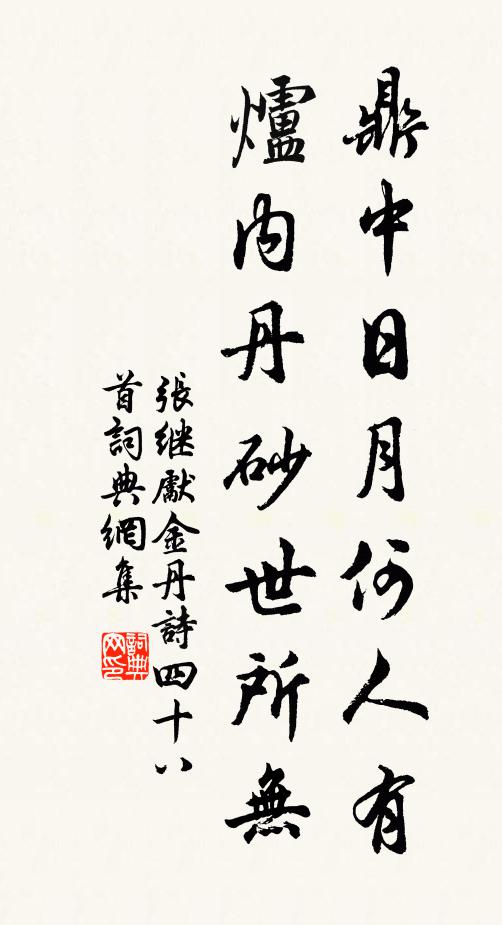 鼎中日月何人有
爐内丹砂世所無
張继獻金丹詩四十八
首詞典網集
詞典网印